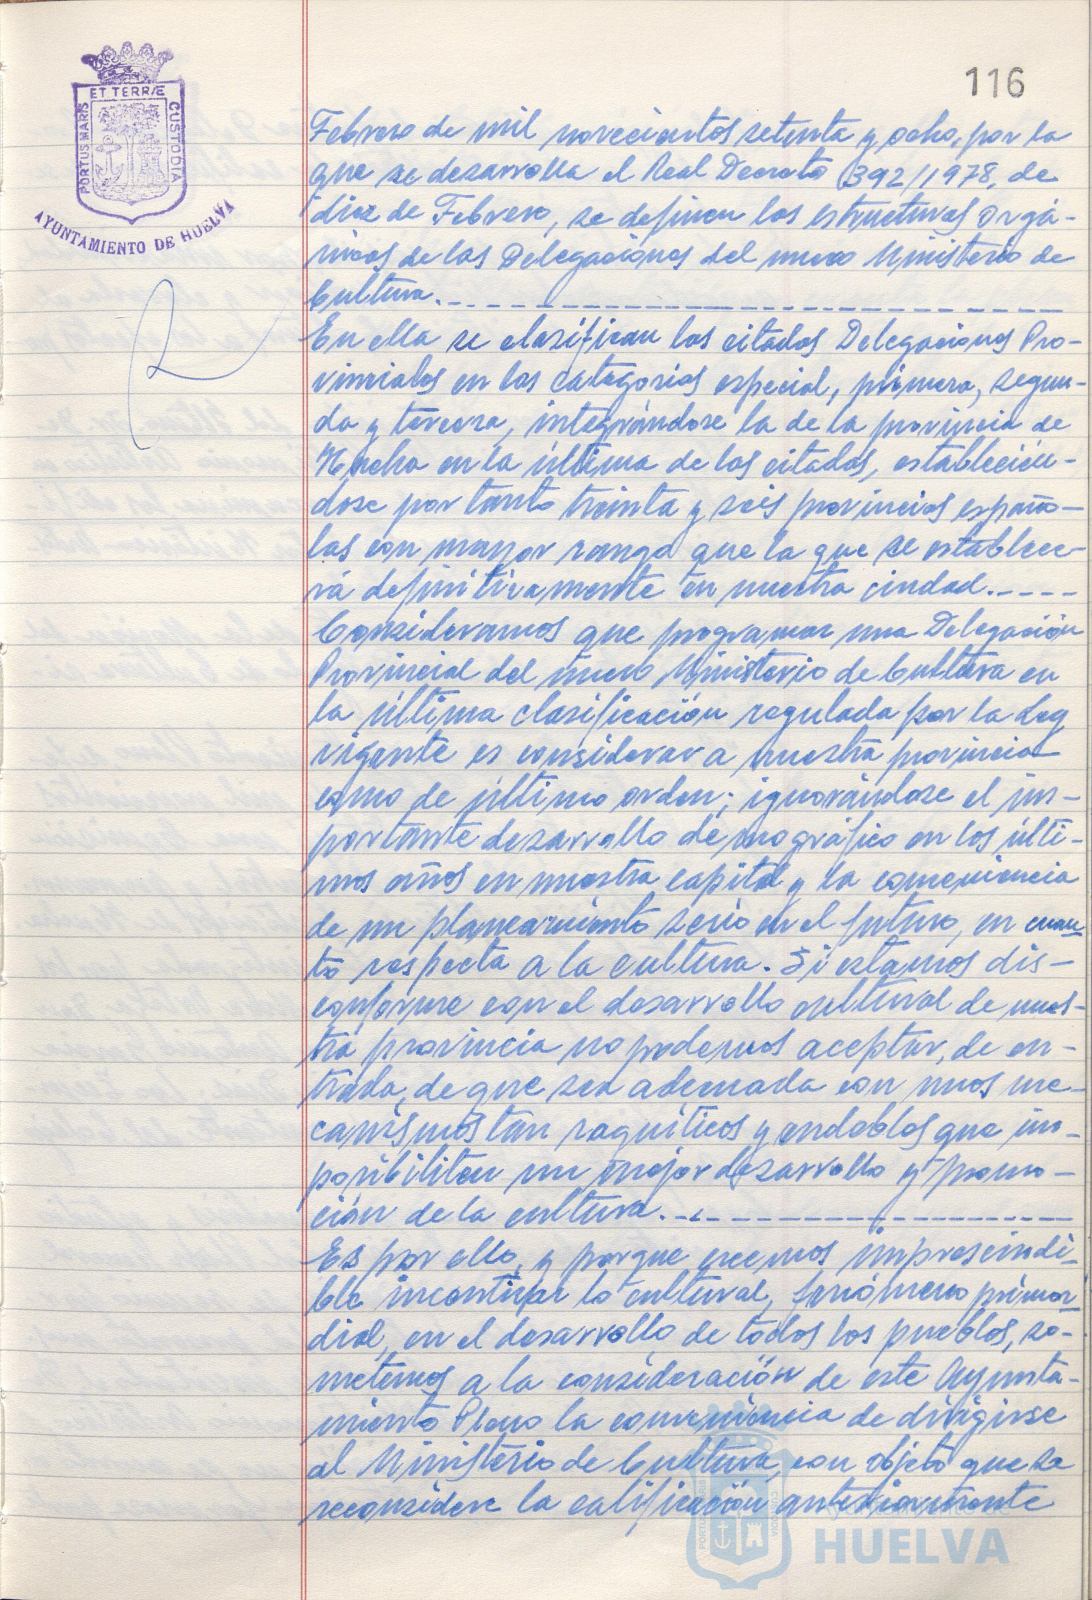 116
ET TERRÆ
PORTUS MARIS
CUSTODIA
AYUNTAMIENTO DE HUELVA
Febrero de mil novecientos setenta y ocho, por la
que se desarrolla el Real Decreto 392/1978, de
diez de Febrero, se definen las estructuras orgá-
nicas de las Delegaciones del nuevo Ministerio de
Cultura.
En ella se clasifican las citadas Delegaciones Pro-
vinciales en las categorías especial, primera, segun-
da y tercera, integrándose la de la provincia de
Huelva en la última de las citadas, establecién-
dose por tanto treinta y seis provincias españo-
las con mayor rango que la que se establece-
rá definitivamente en nuestra ciudad.
Consideramos que programar una Delegación
Provincial del nuevo Ministerio de Cultura en
la última clasificación regulada por la Ley
vigente es considerar a nuestra provincia
como de último orden; ignorándose el im-
portante desarrollo demográfico en los últi-
mos años en nuestra capital y la conveniencia
de un planeamiento serio en el futuro, en cuan-
to respecta a la cultura. Si estamos dis-
conforme con el desarrollo cultural de nues-
tra provincia no podemos aceptar, de en-
trada, de que sea adornada con unos me-
canismos tan raquíticos y endebles que im-
posibiliten un mejor desarrollo y promo-
ción de la cultura.
Es por ello, y porque creemos imprescindi-
ble incentivar lo cultural, fenómeno primor-
dial, en el desarrollo de todos los pueblos, so-
metemos a la consideración de este Ayunta-
miento Pleno la conveniencia de dirigirse
al Ministerio de Cultura, con objeto que se
reconsidere la calificación anteriormente
HUELVA